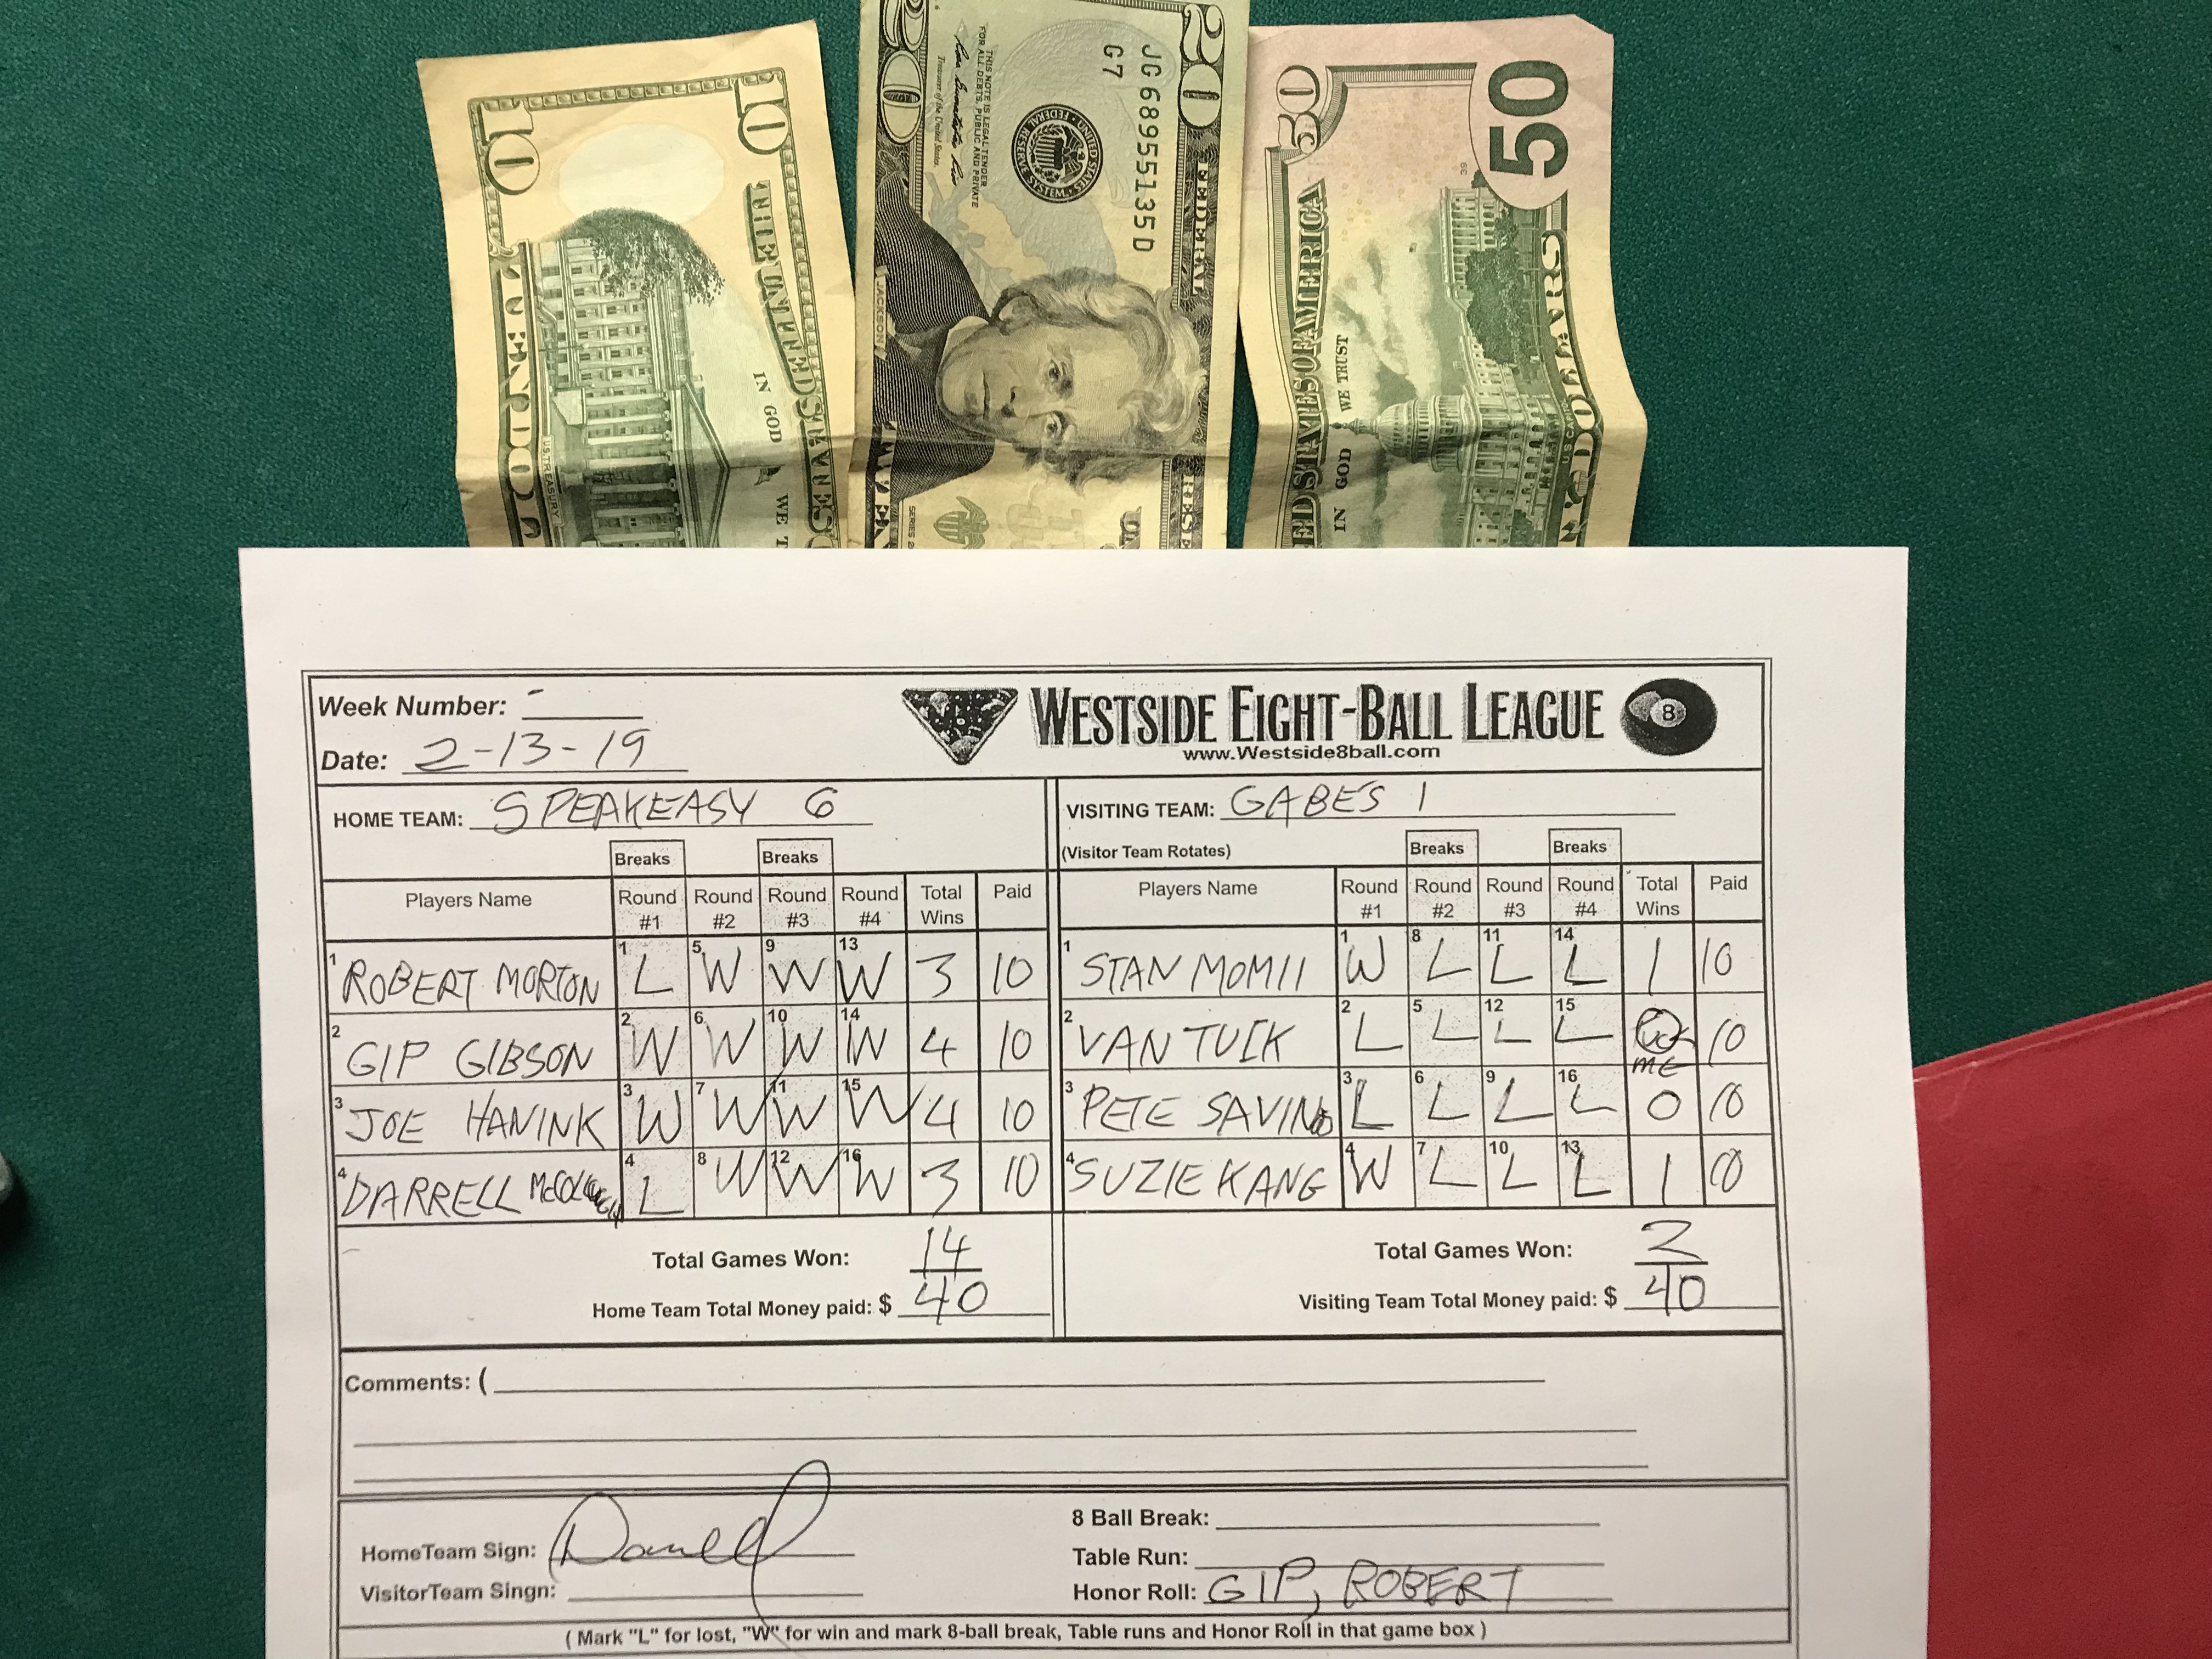 10
10
THE UNITED STATES O
IN GOD WE T
US TREASURY
20
20
THIS NOTE IS LEGAL TENDER
FOR ALL DEBTS, PUBLIC AND PRIVATE
Treasurer of the United States.
JG68955135D
G7
FEDERAL
UNITED STATES FEDERAL RESERVE SYSTEM
JACKSON
50
50
ED STATES OF AMERICA
IN GOD WE TRUST
DOLLARS
Week Number: -
Date: 2-13-19
WESTSIDE EIGHT-BALL LEAGUE 8
www.Westside8ball.com
HOME TEAM: SPEAKEASY 6 VISITING TEAM: GABES 1
Breaks Breaks (Visitor Team Rotates) Breaks Breaks
Players Name Round #1 Round #2 Round #3 Round #4 Total Wins Paid Players Name Round #1 Round #2 Round #3 Round #4 Total Wins Paid
1 ROBERT MORTON 1 L 5 W 9 W 13 W 3 10 1 STAN MOMII 1 W 8 L 11 L 14 L 1 10
2 GIP GIBSON 2 W 6 W 10 W 14 W 4 10 2 VAN TUIK 2 L 5 L 12 L 15 L 10
3 JOE HANINK 3 W 7 W 11 W 15 W 4 10 3 PETE SAVINO 3 L 6 L 9 L 16 L 0 10
4 DARRELL 4 L 8 W 12 W 16 W 3 10 4 SUZIE KANG 4 W 7 L 10 L 13 L 1 10
Total Games Won: 14 Total Games Won: 2
Home Team Total Money paid: $ 40 Visiting Team Total Money paid: $ 40
Comments: (
HomeTeam Sign: Darrell 8 Ball Break:
Table Run:
VisitorTeam Singn: Honor Roll: GIP, ROBERT
( Mark "L" for lost, "W" for win and mark 8-ball break, Table runs and Honor Roll in that game box )